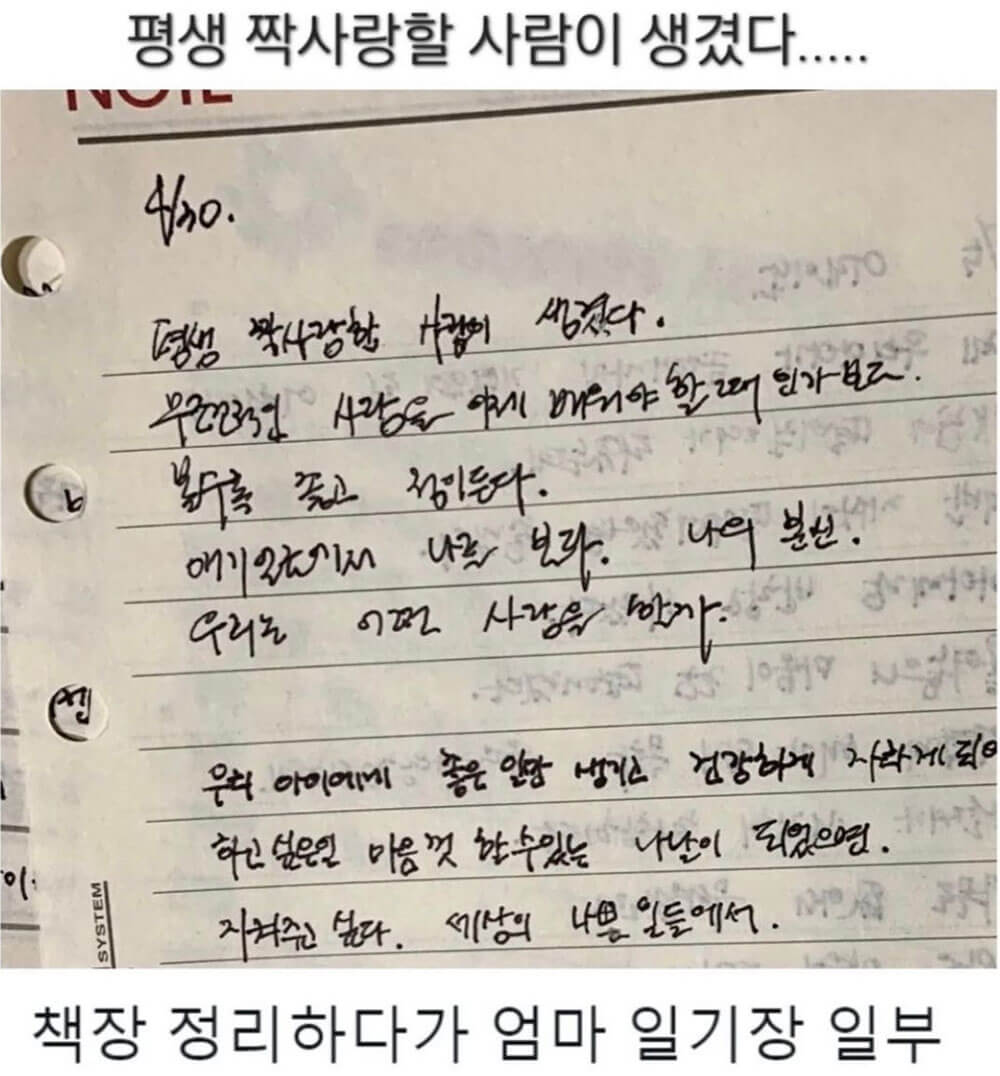 평생 짝사랑할 사람이 생겼다.....
NOTE
4/30.
평생 짝사랑할 사람이 생겼다.
무조건적인 사랑을 이제 배워야 할 때 인가보다.
볼수록 좋고 정이든다.
얘기 있는거서 나를 보라. 나의 분신.
우리는 어떤 사랑을 할까.
우리 아이에게 좋은 일만 생기고 건강하게 자라게 되어
하고 싶은일 마음껏 할 수 있는 나날이 되었으면.
지켜주고 싶다. 세상의 나쁜 일들에서.
SYSTEM
책장 정리하다가 엄마 일기장 일부